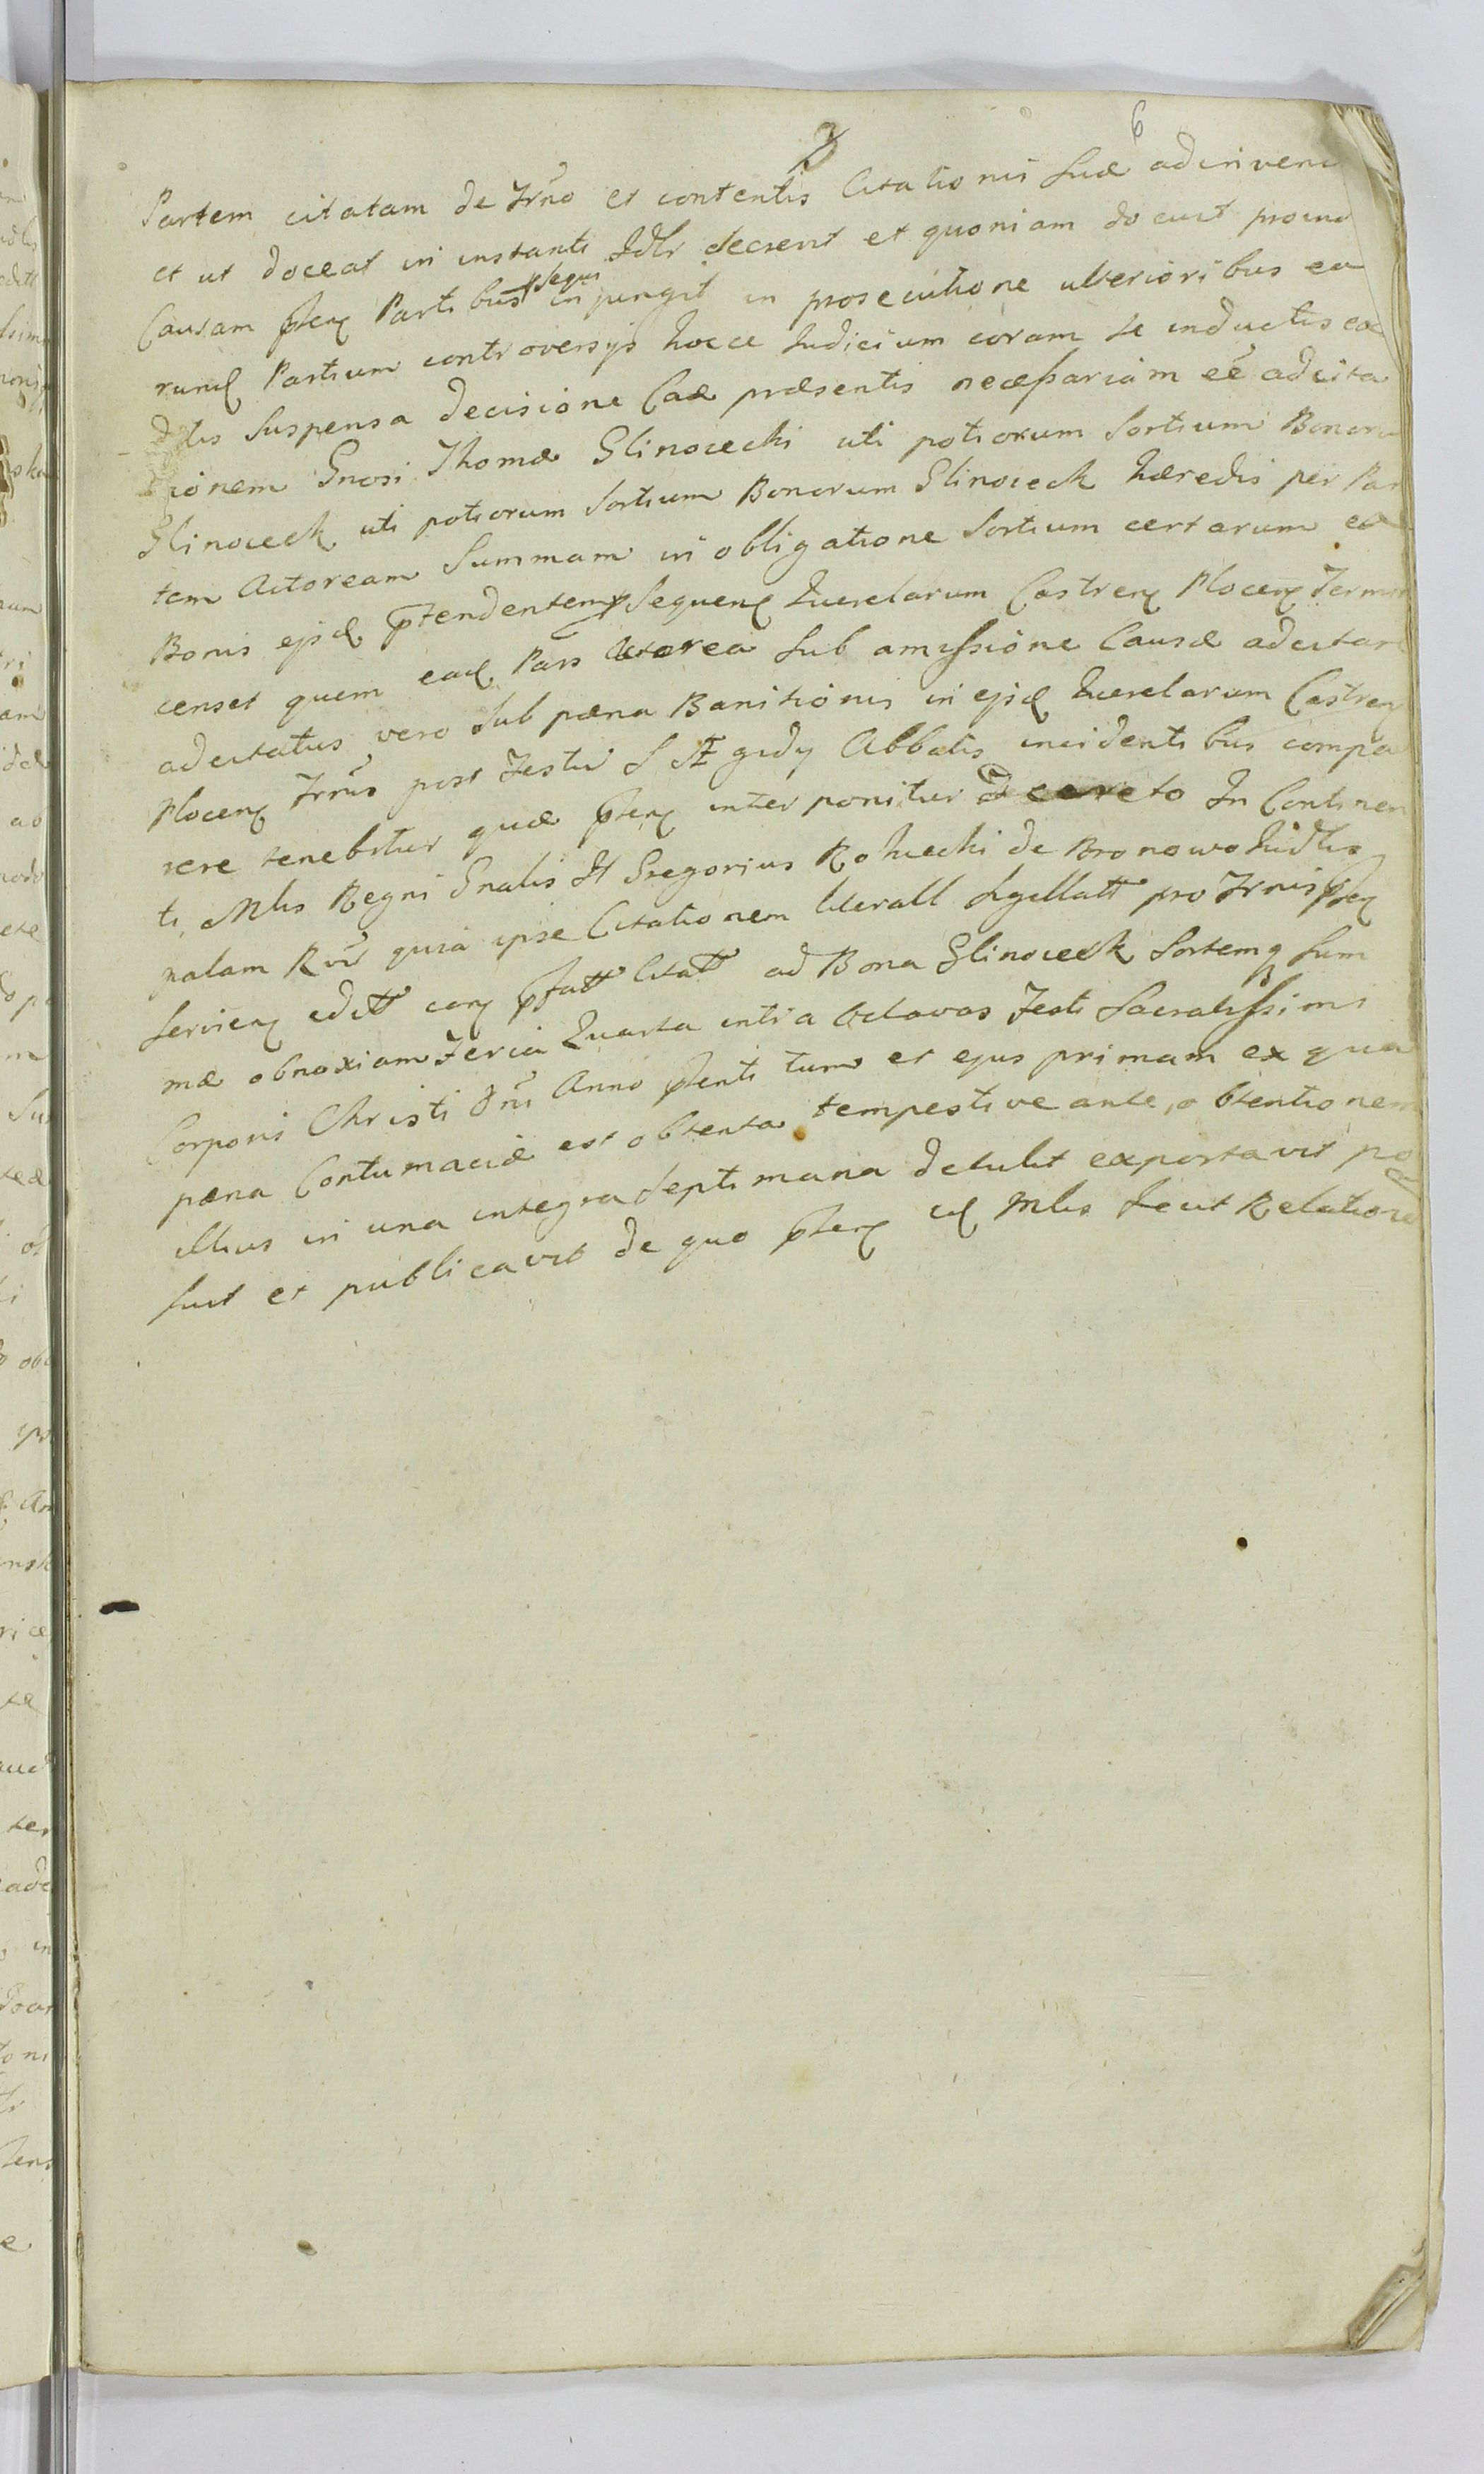 3
6
Partem citatam de Trno et contentis Citationis suæ ad inveni
et ut doceat in instanti Jdlr decrevit et quoniam docuit proinde
Causam pten Partibus prsequi injungit in prosecutione ulterioribus ea
rund Partium controversys hocce Judicium coram se inductis ex
dtis suspensa decisione Cae præsentis necessariam eē adcita
tionem Gnosi Thomæ Glinoiecki uti potiorum Sortium Bonorum
Glinoieck uti potiorum Sortium Bonorum Glinoieck hæredis per Par
tem Actoream Summam in obligatione Sortium certarum ex
Bonis ejsd ptendentem pro Sequen Querelarum Castren Plocen Termin
censet quem ead Pars Actorea sub amissione Causæ adcitare
adcitatus vero sub pæna Banitionis in ejsd Querelarum Castren
Plocen Trnis post Festū S Ægidy Abbatis incidentibus compa
rere tenebitur quæ pten interponitur Decreto In Continen
ti, Mlis Regni Gnalis Jt Gregorius Rokicki de Bronowo Kidlis
palam Rvit quia ipse Citationem literall sigillatt pro Trnis pten
servien editt can pfatt Citatt ad Bona Glinoieck Sortemq Sum
mæ obnoxiam Feria Quarta intra Octavas Festi Sacratissimi
Corporis Christi Dni Anno pñti tum et ejus primam ex qua
pæna Contumaciæ est obtenta tempestive ante, obtentionem
illius in una integra septimana detulit exportavit po
suit et publicavit de quo pten id Mlis fecit Relationem